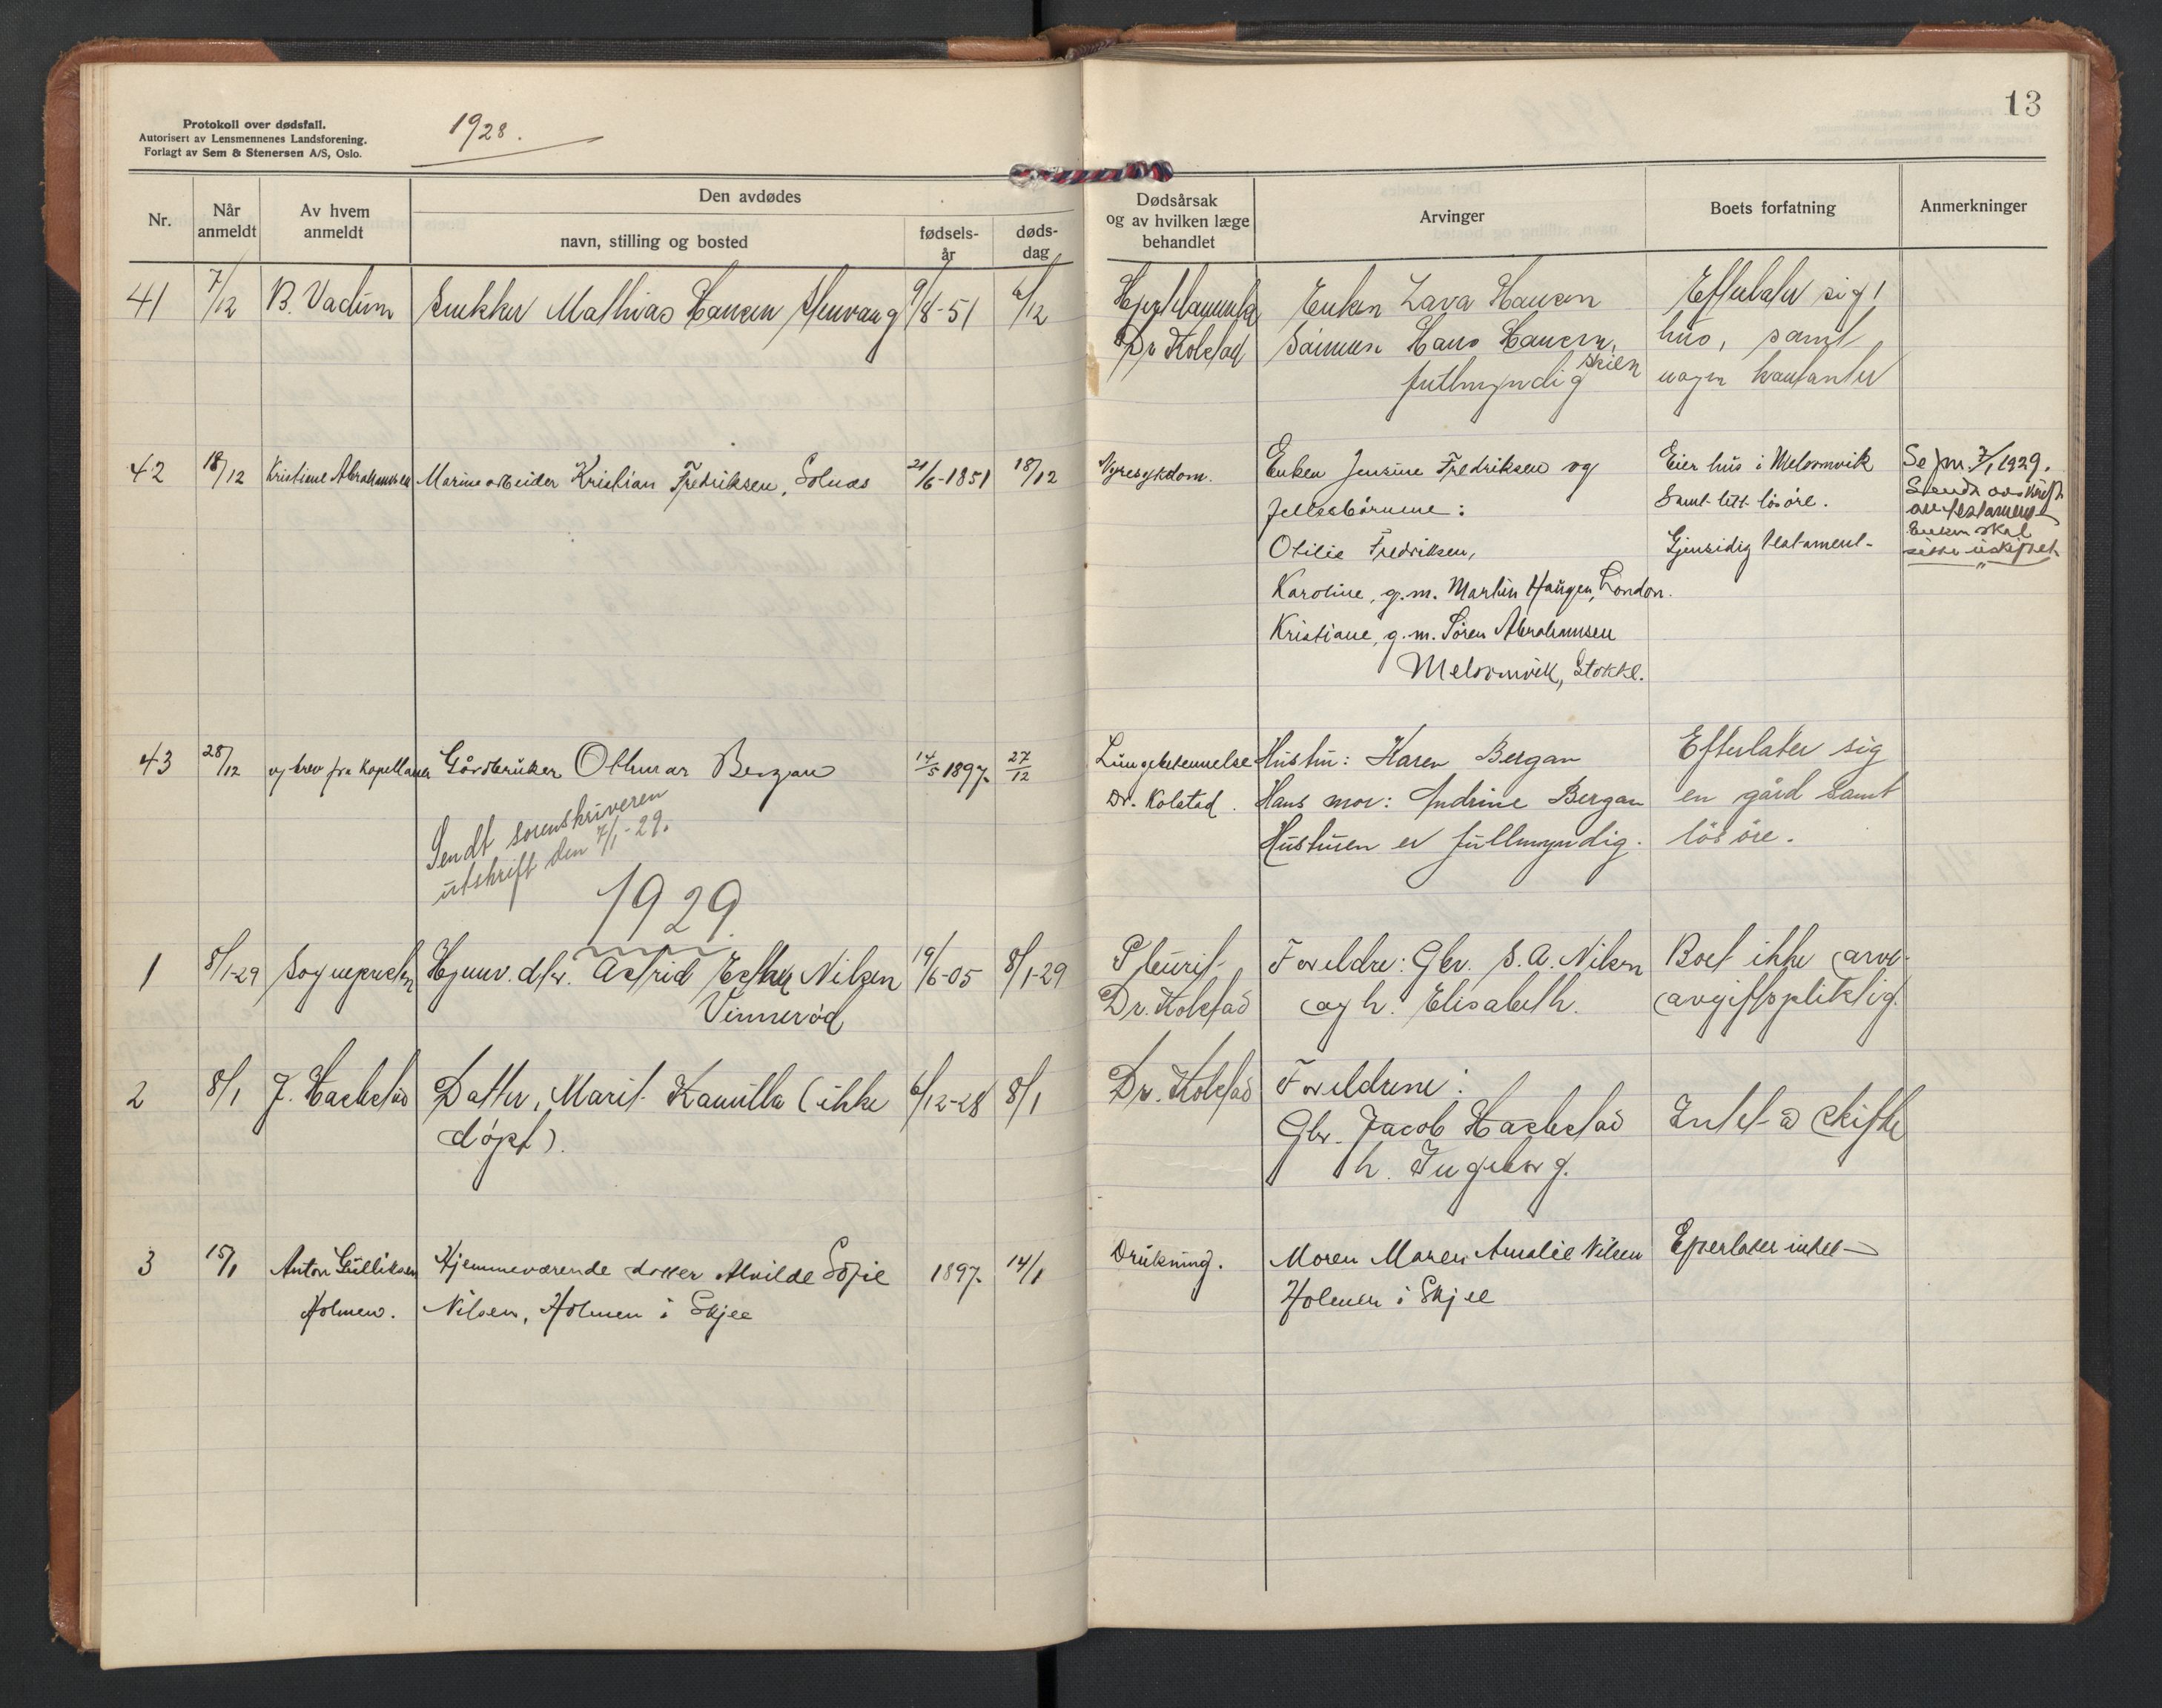 Protokoll over dødsfall.
Autorisert av Lensmennenes Landsforening.
Forlagt av Sem & Stenersen A/S, Oslo.
1928.
13
Nr.
Når anmeldt
Av hvem anmeldt
Den avdødes
navn, stilling og bosted
fødsels-år
døds-dag
Dødsårsak og av hvilken læge behandlet
Arvinger
Boets forfatning
Anmerkninger
41 7/12 B. Vadum Snekker Mathias Hansen 9/8-51 6/12 Enken Lava Hansen Efterlater sig
Dr Kolstad Sønnen Hans Hansen, hus, samt
Skien
fullmyndig nogen kontanter
42 18/12 Kristiane Abrahamsen Marinearbeider Kristian Fredriksen, Solnes 21/6-1851 18/12 Nyresykdom. Enken Jensine Fredriksen og Eier hus i Melsomvik Se jnr. 7/1 1929.
fellesbarnene: Samt litt lösöre. Sendt avskrift
av testament
Otilie Fredriksen, Gjensidig testament Enken skal
sitte uskiftet
Karoline, g.m. Martin Haugen, London.
Kristiane, g.m. Sören Abrahamsen
Melsomvik, Stokke.
43 28/12 og brev fra Kapellanen Gårdbruker Othmar Bergan 14/5 1897. 27/12 Lungebetennelse Hustru: Karen Bergan Efterlater sig
Dr. Kolstad. Hans mor: Andrine Bergan en gård samt
Hustruen er fullmyndig. lösöre.
Sendt sorenskriveren
utskrift den 7/1-29.
1929.
1 8/1-29 Sognepresten Hjemv. dtr. Astrid Esther Nilsen 19/6-05 8/1-29 Pleurit Foreldre: Gbr. S. A. Nilsen Boet ikke arve-
Vinnerød Dr. Kolstad og h. Elisabeth. avgiftspliktig.
2 8/1 J. Hackstad Datter, Marit Kamilla (ikke 6/12-28 8/1 Dr. Kolstad Foreldrene:
døpt). Gbr. Jacob Haekstad Intet å skifte
h. Ingeborg.
3 15/1 Anton Gulliksen Hjemmeværende datter Alvilde Sofie 1897. 14/1 Drukning. Moren Maren Amalie Nilsen Efterlater intet
Holmen. Nilsen, Holmen i Skjee Holmen i Skjee